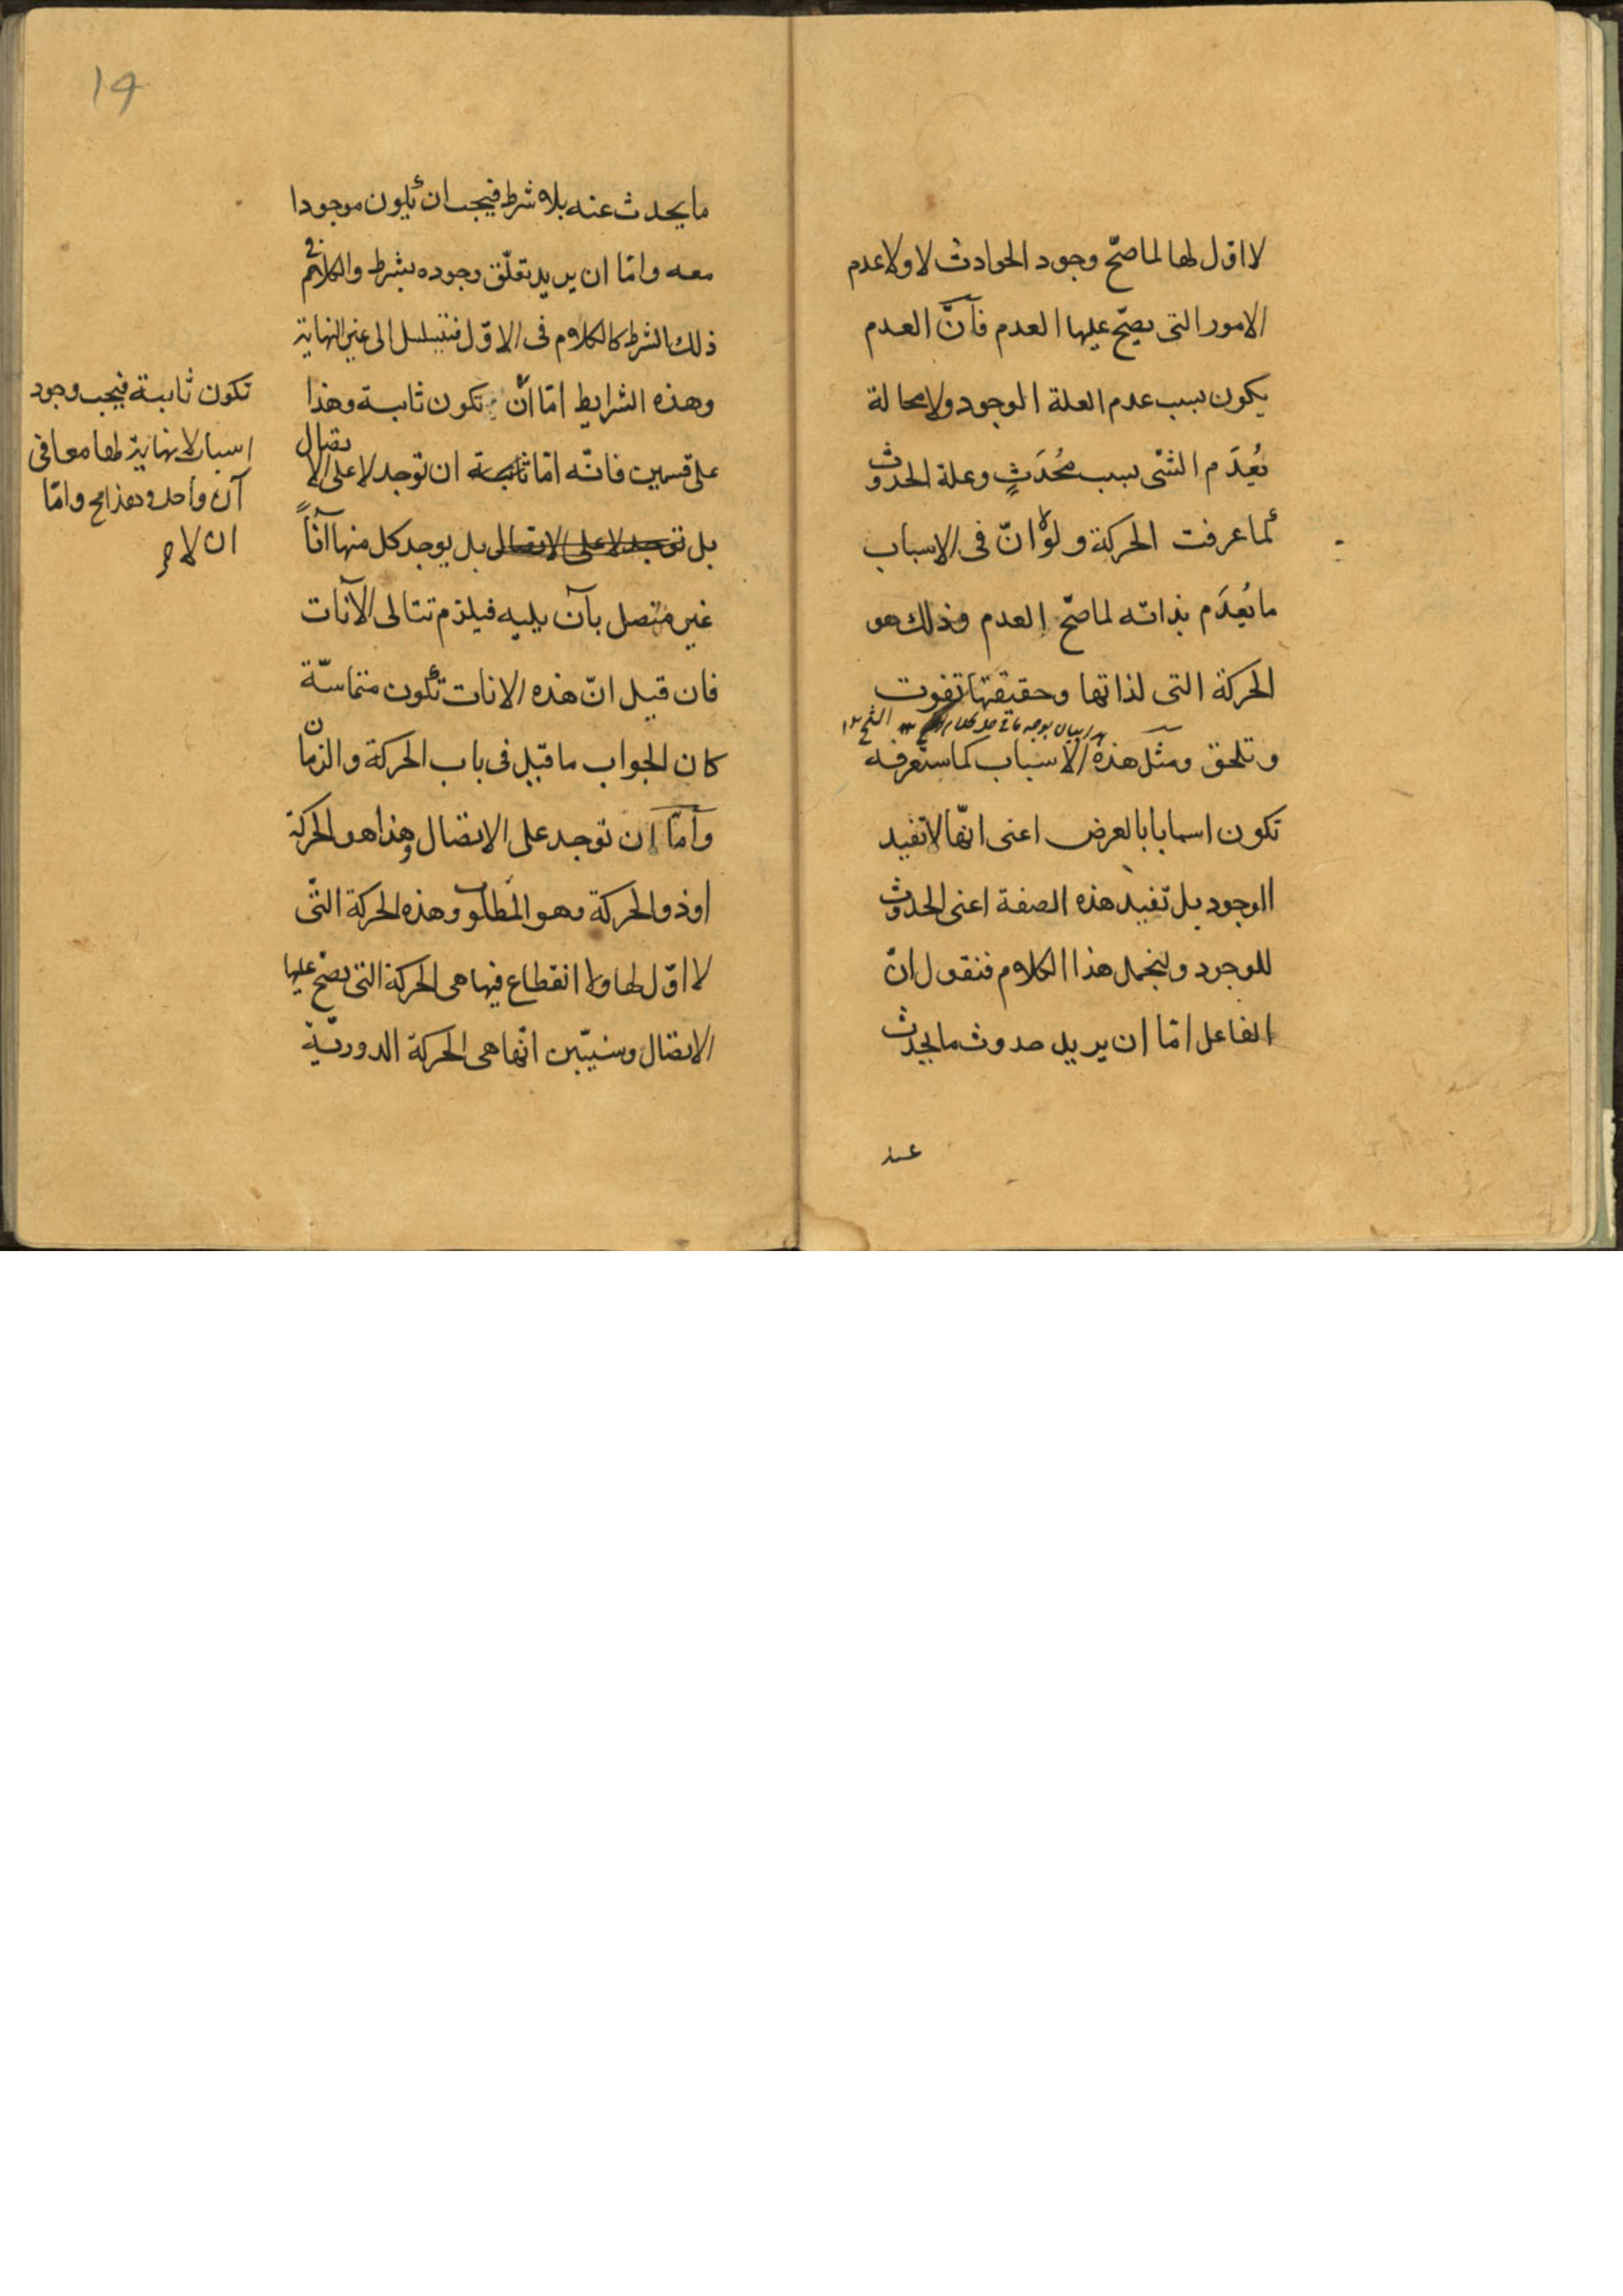 لا اوّل لها لما صحّ وجود الحوادث لا ولا عدم
الامور التى يصحّ عليها العدم فانّ العدم
يكون بسبب عدم العلة الوجود ولا محالة
يُعدَم الشئ بسبب مُحدَثٍ وعلة الحدوث
كما عرفت الحركة ولولا انّ فى الاسباب
ما يُعدَم بذاته لما صحّ العدم وذلك هو
الحركة التى لذاتها وحقيقتها تفوت
وتلحق ومثل هذه الاسباب كما ستعرفه
تكون اسبابا بالعرض اعنى انّها لا تفيد
الوجود بل تفيد هذه الصفة اعنى الحدوث
للوجود ولنجمل هذا الكلام فنقول انّ
الفاعل امّا ان يريد حدوث ما يحدث
عنه
19
ما يحدث عنه بلا شرط فيجب ان يكون موجودا
معه وامّا ان يريد تعلّق وجوده بشرط والكلام فى
ذلك الشرط كالكلام فى الاوّل فتتسلسل الى غير النهاية
وهذه الشرايط امّا انّ تكون ثابتة وهذا
على قسمين فانّه امّا ان توجد لا على الاتصال
بل توجد لا على الاتصال بل يوجد كل منها آناً
غير متصل بآن يليه فيلزم تتالى الآنات
فان قيل انّ هذه الانات تكون متماسّة
كان الجواب ما قيل فى باب الحركة والزمان
وامّا ان توجد على الاتصال وهذا هو الحركة
او ذو الحركة وهو المطلوب وهذه الحركة التى
لا اوّل لها ولا انقطاع فيها هى الحركة التى يصحّ عليها
الاتصال وسنبيّن انّها هى الحركة الدوريّة
تكون ثابتة فيجب وجود
اسباب لا نهاية لها معا فى
آن واحد وهذا مح وامّا
ان لا